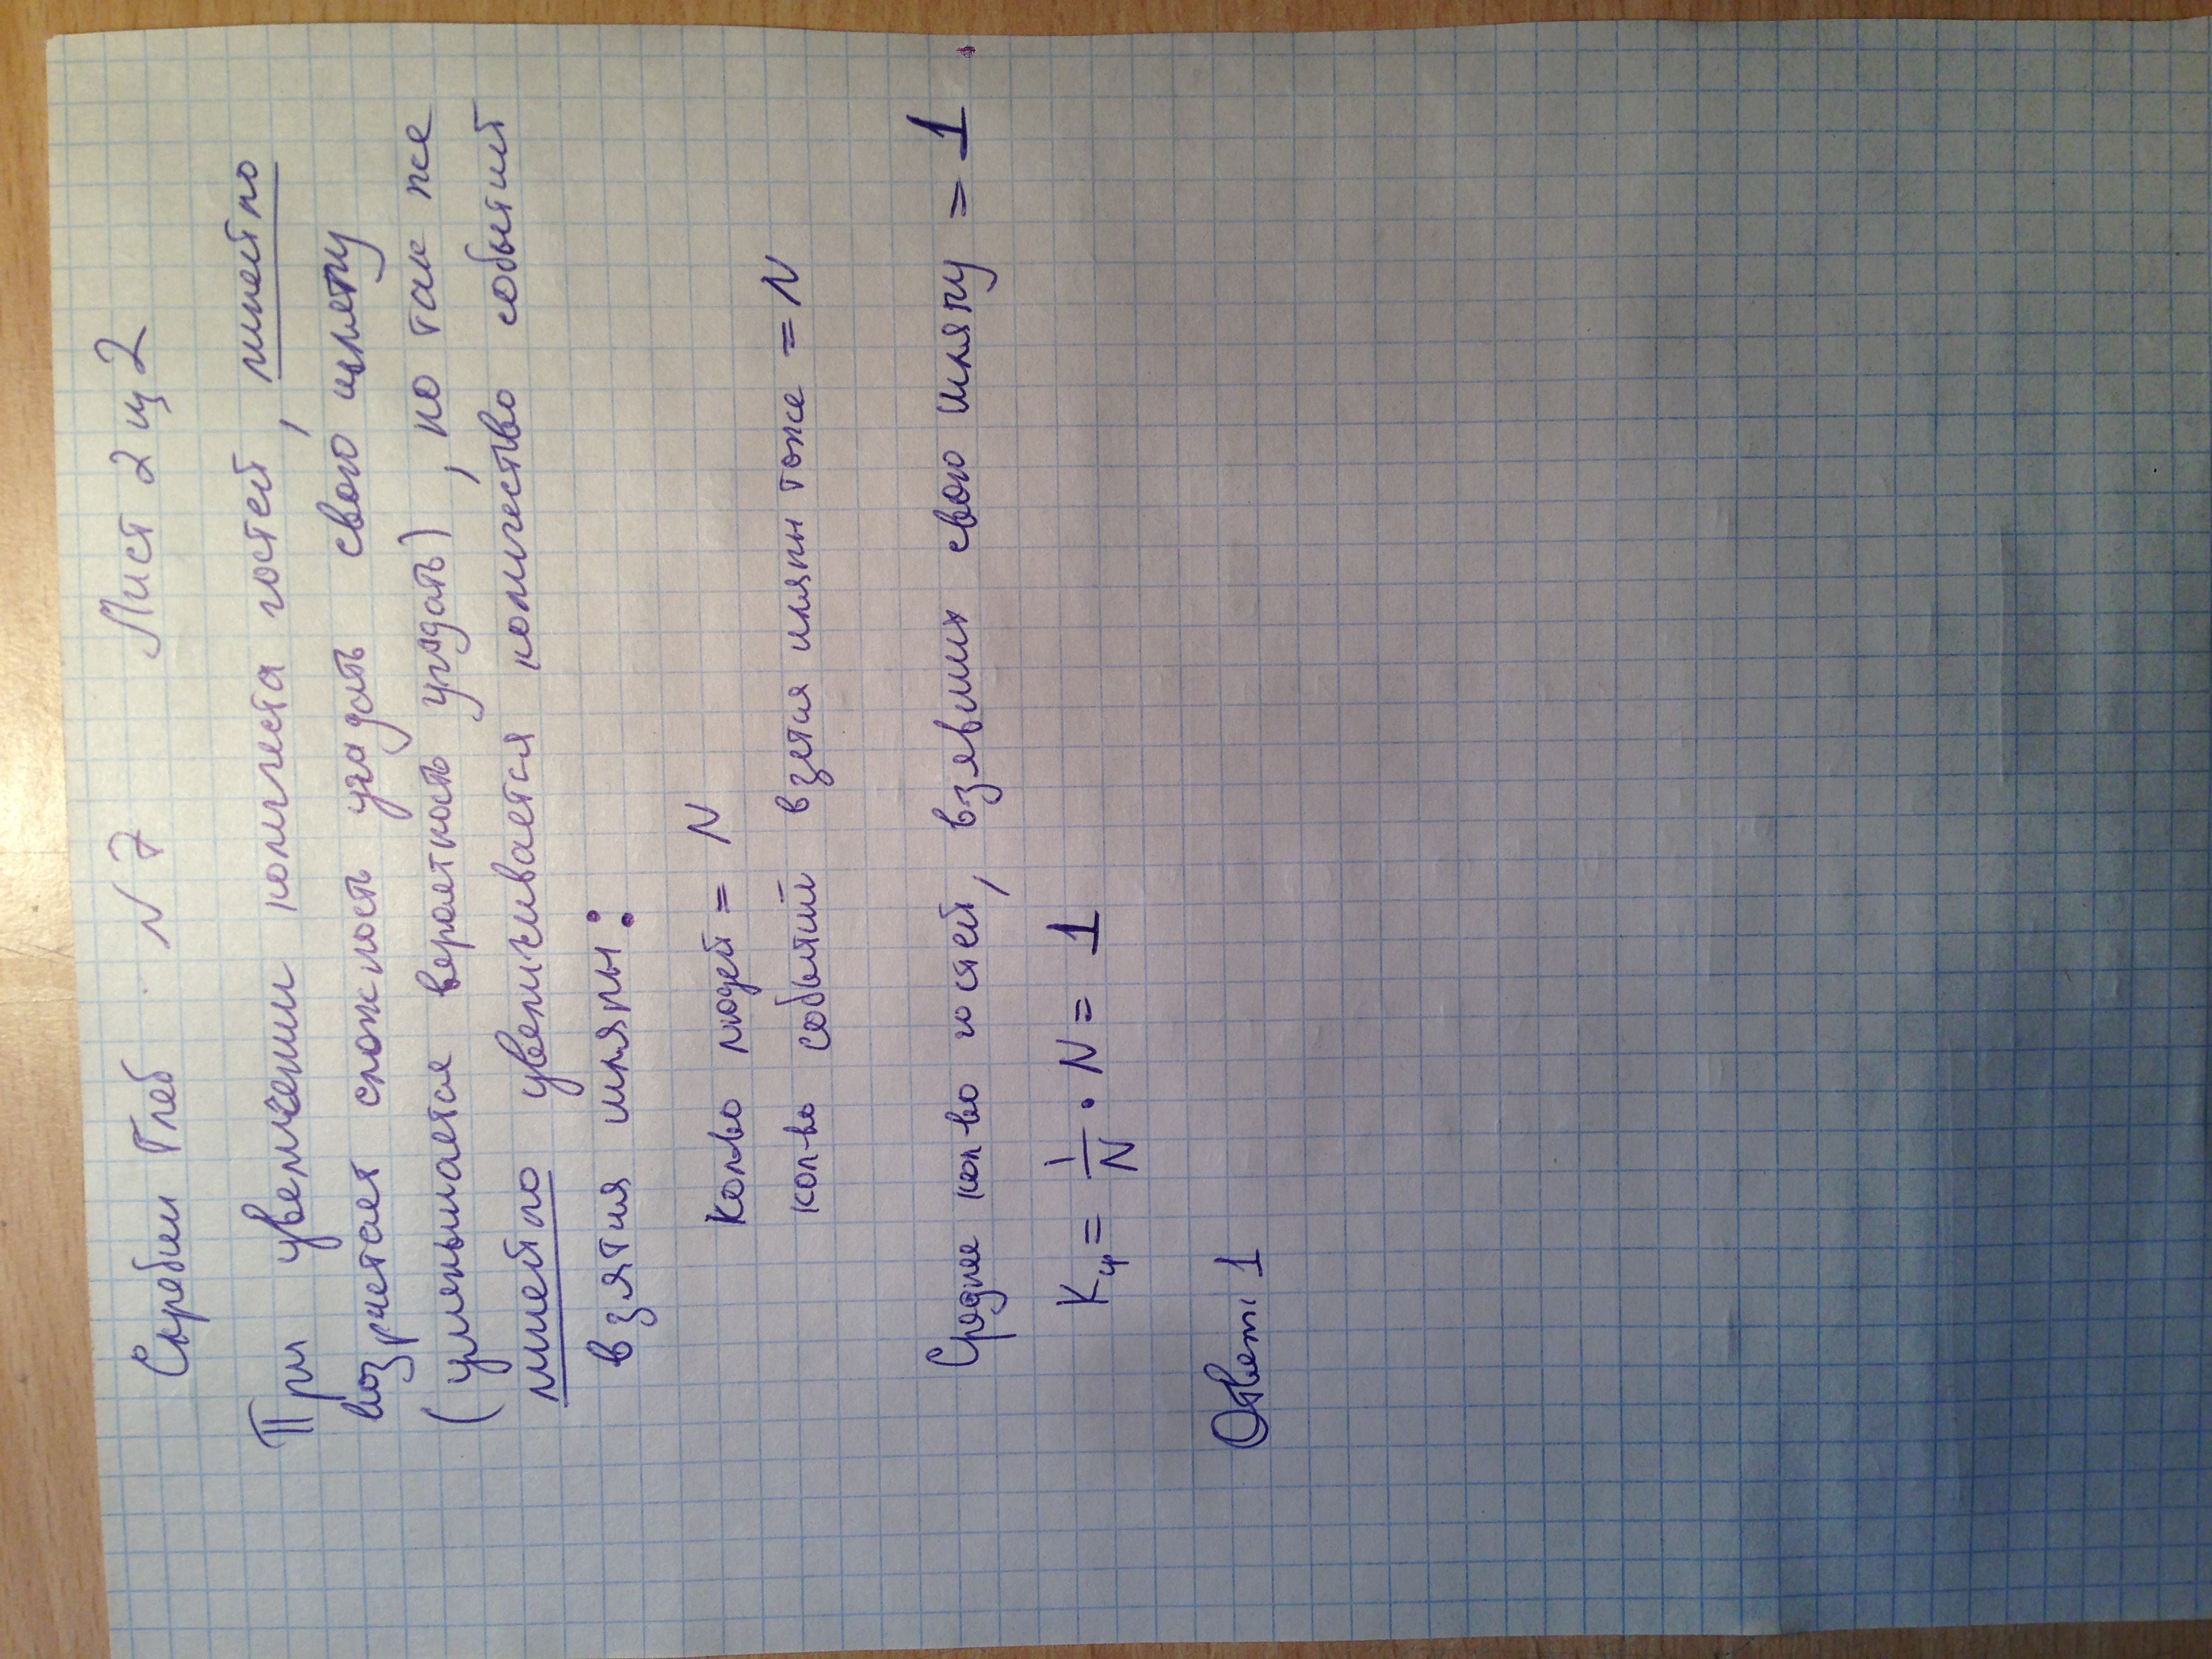 Скребин Глеб N 7 Лист 2 из 2
При увеличении количеста гостей, линейно
возрастает сложность угадать свою шляпу
(уменьшается вероятность угадать), но так же
линейно увеличивается количество событий
взятия шляпы:
Кол-во людей = N
кол-во событий взятия шляпы тоже = N
Среднее кол-во гостей, взявших свою шляпу = 1.
Kср = 1/N · N = 1
Ответ: 1